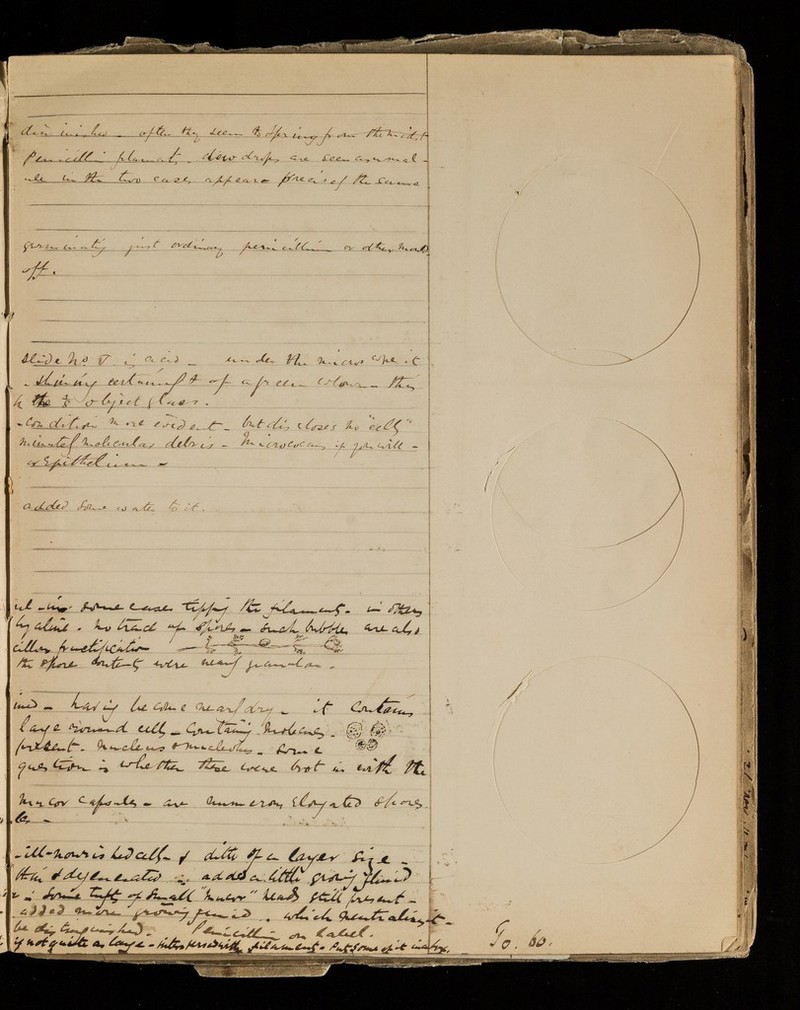 diminishes - often they seem to spring from the midst
Penicillin filament. dew drops are seen as usual -
in the two cases appears precisely the same
germinating just ordinary penicillium or other mould
off.
Slide No is acid - under the microscope it
- shining certainly of a green colour - this
the object glass.
- condition more evident - but discloses no "cells"
minutely molecular debris - Micrococcus if you will -
Epithelium -
added some water to it.
in some cases tipping the filaments - in others
hyaline. no trace of spores - such bubbles are also
fructification
the spore contents were nearly granular.
- having become nearly dry - it contains
large round cells - containing molecules.
present. nucleus & nucleolus. some
question is whether these were brot in with the
mucor capsules - are numerous elongated spores
- ill-nourished cells & ditto of a larger size -
thin & degenerated added a little growing fluid
some tufts of small "mucor" heads still present -
added more growing fluid. which neutralises it -
be distinguished. Penicillin on label.
if not quite as large - interspersed with filaments. Put some of it in a box.
To. 60.